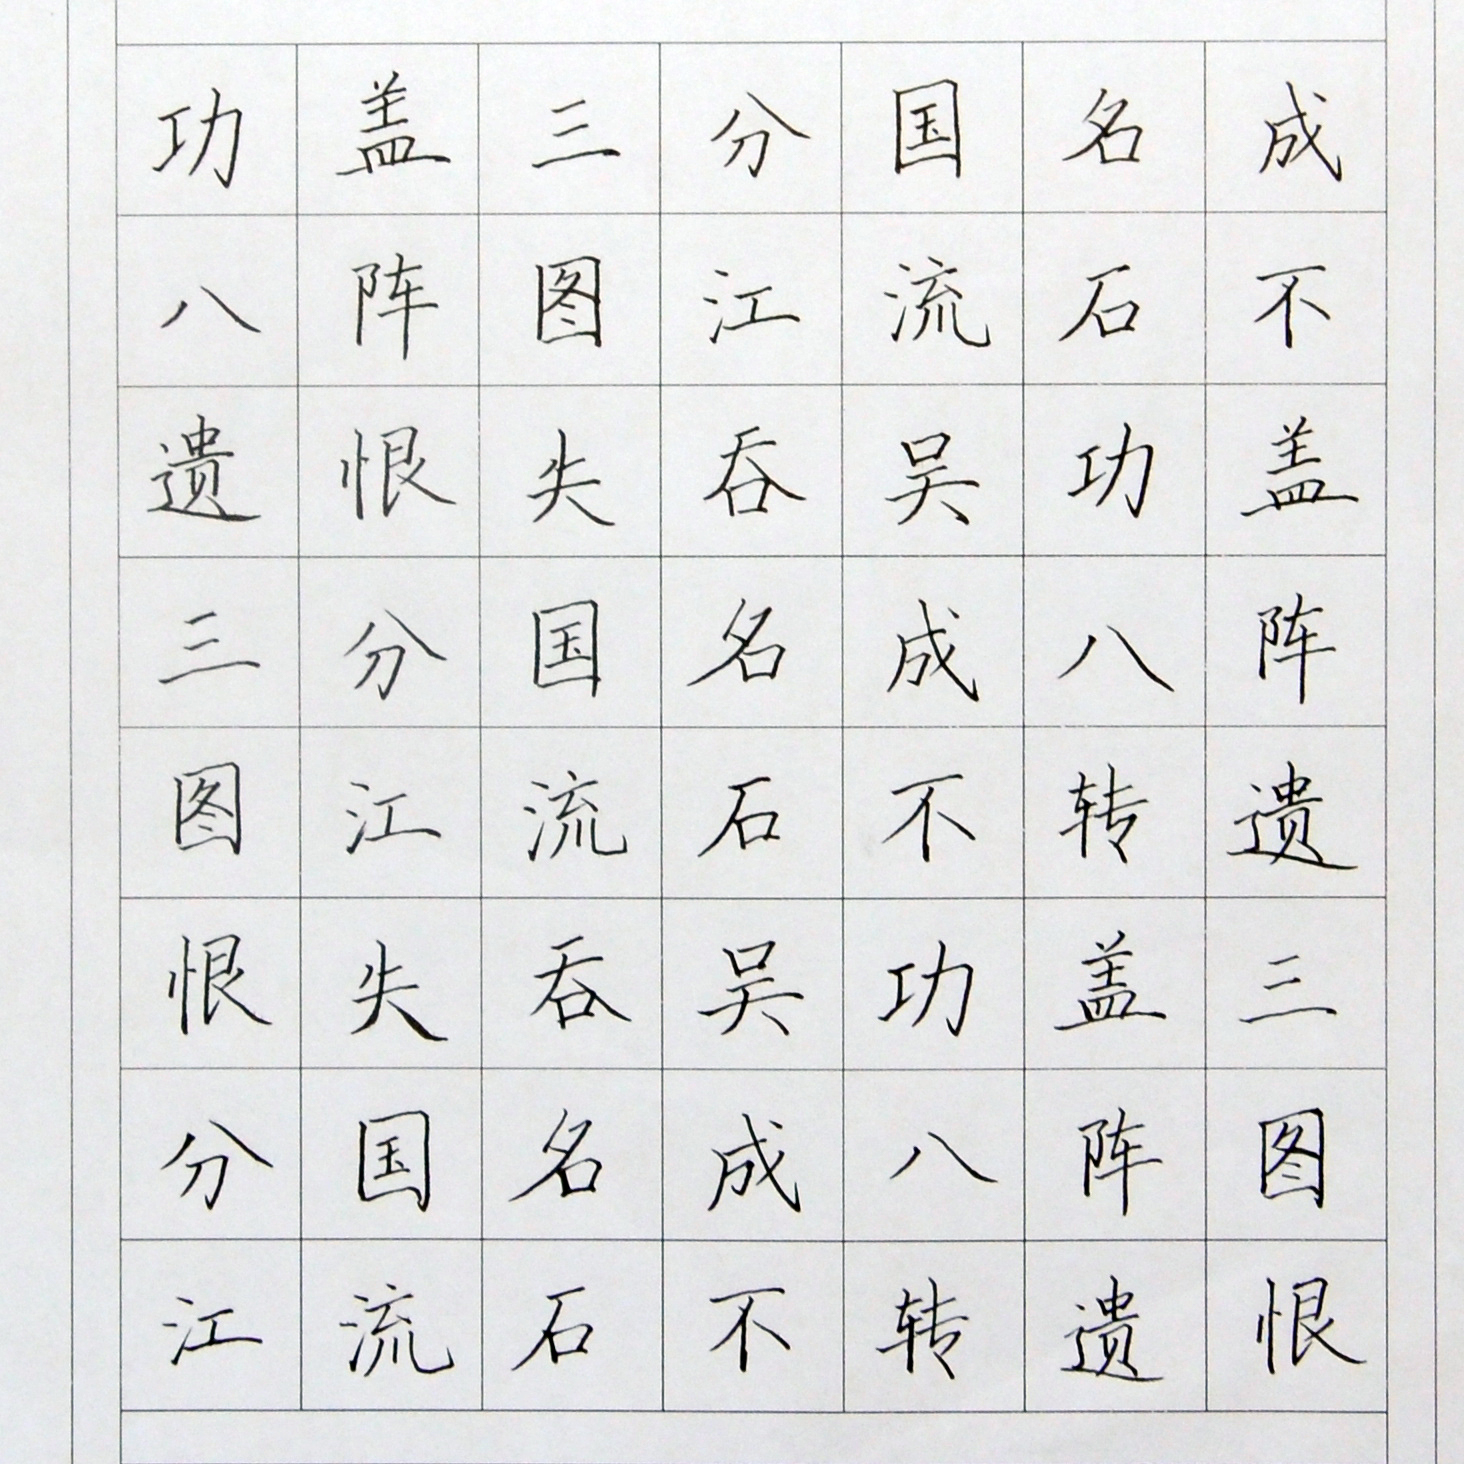 功盖三分国名成
八阵图江流石不
遗恨失吞吴功盖
三分国名成八阵
图江流石不转遗
恨失吞吴功盖三
分国名成八阵图
江流石不转遗恨